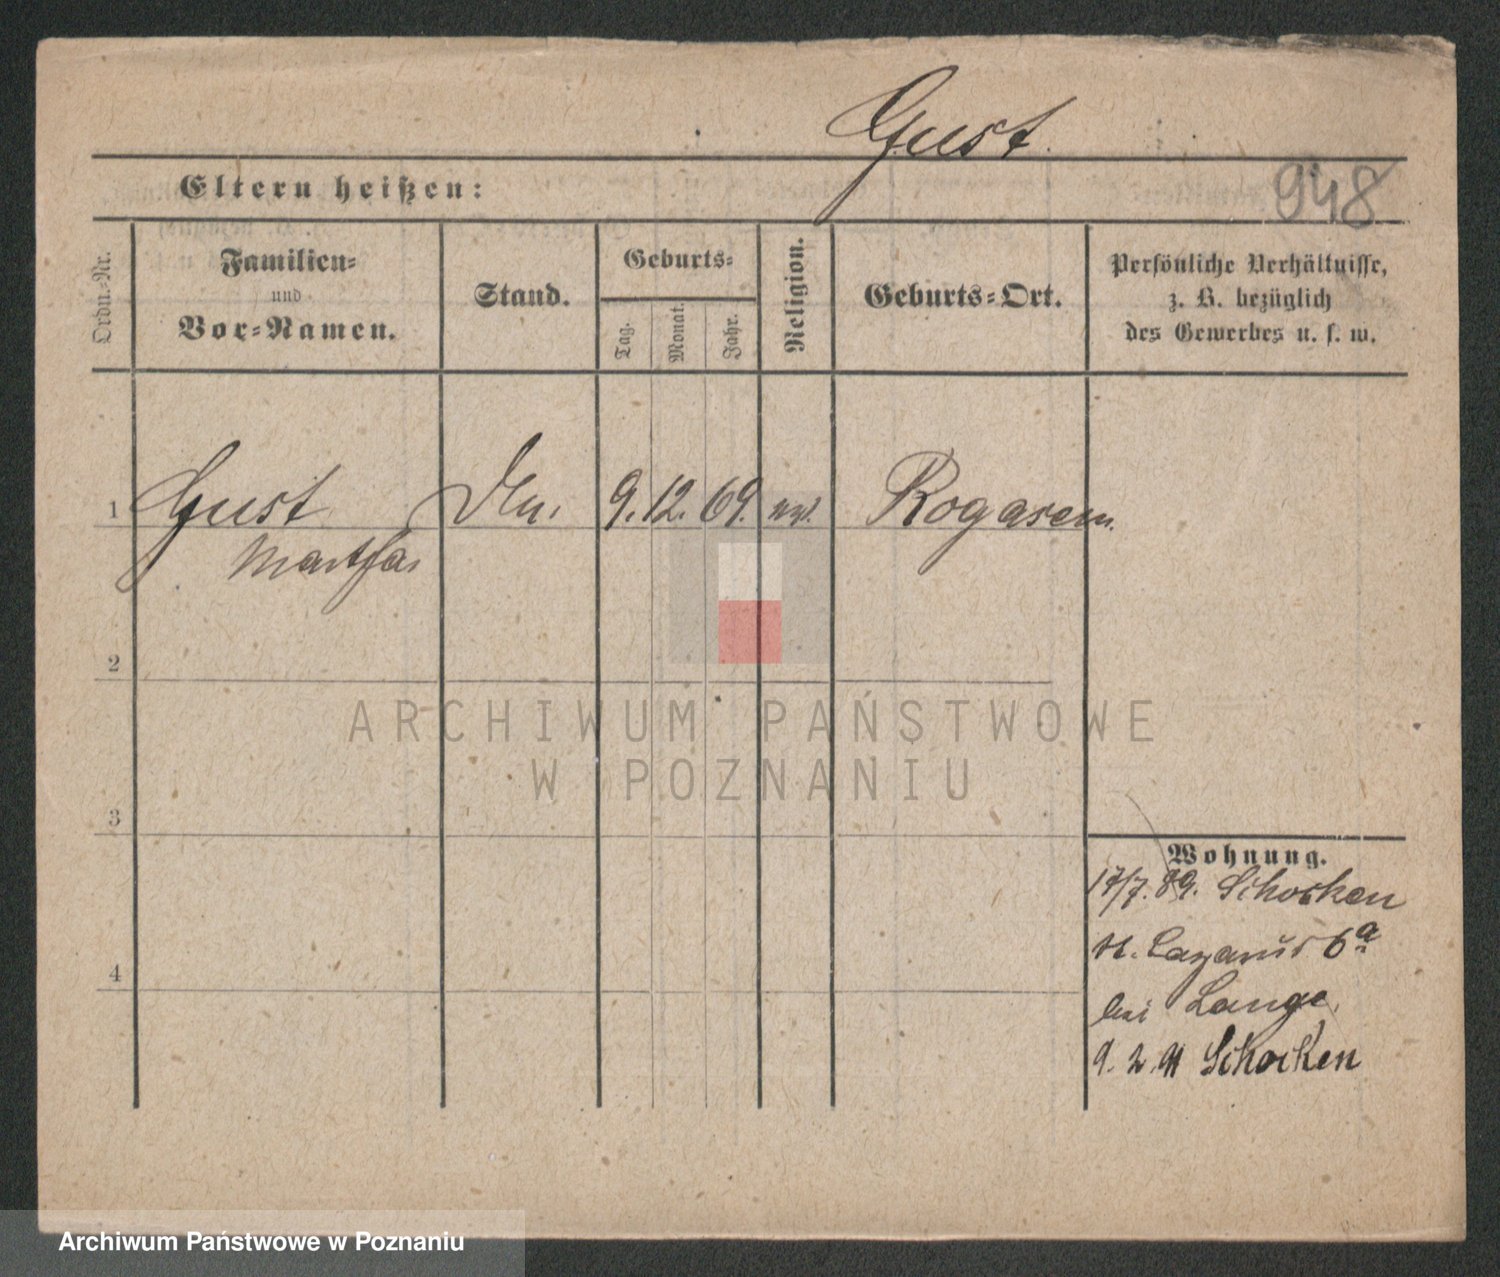 Gust
948
Eltern heißen:
Ordn.-Nr.
Familien-
und
Vor-Namen.
Stand.
Geburts-
Tag.
Monat.
Jahr.
Religion.
Geburts-Ort.
Persönliche Verhältnisse,
z. B. bezüglich
des Gewerbes u. s. w.
1 Gust 9. 12. 69. Rogasen
Martha
2
3
4
ARCHIWUM PAŃSTWOWE
W POZNANIU
Wohnung.
17/7. 89. Schocken
St. Lazarus 6a
bei Lange.
9. 2. 91 Schocken
Archiwum Państwowe w Poznaniu